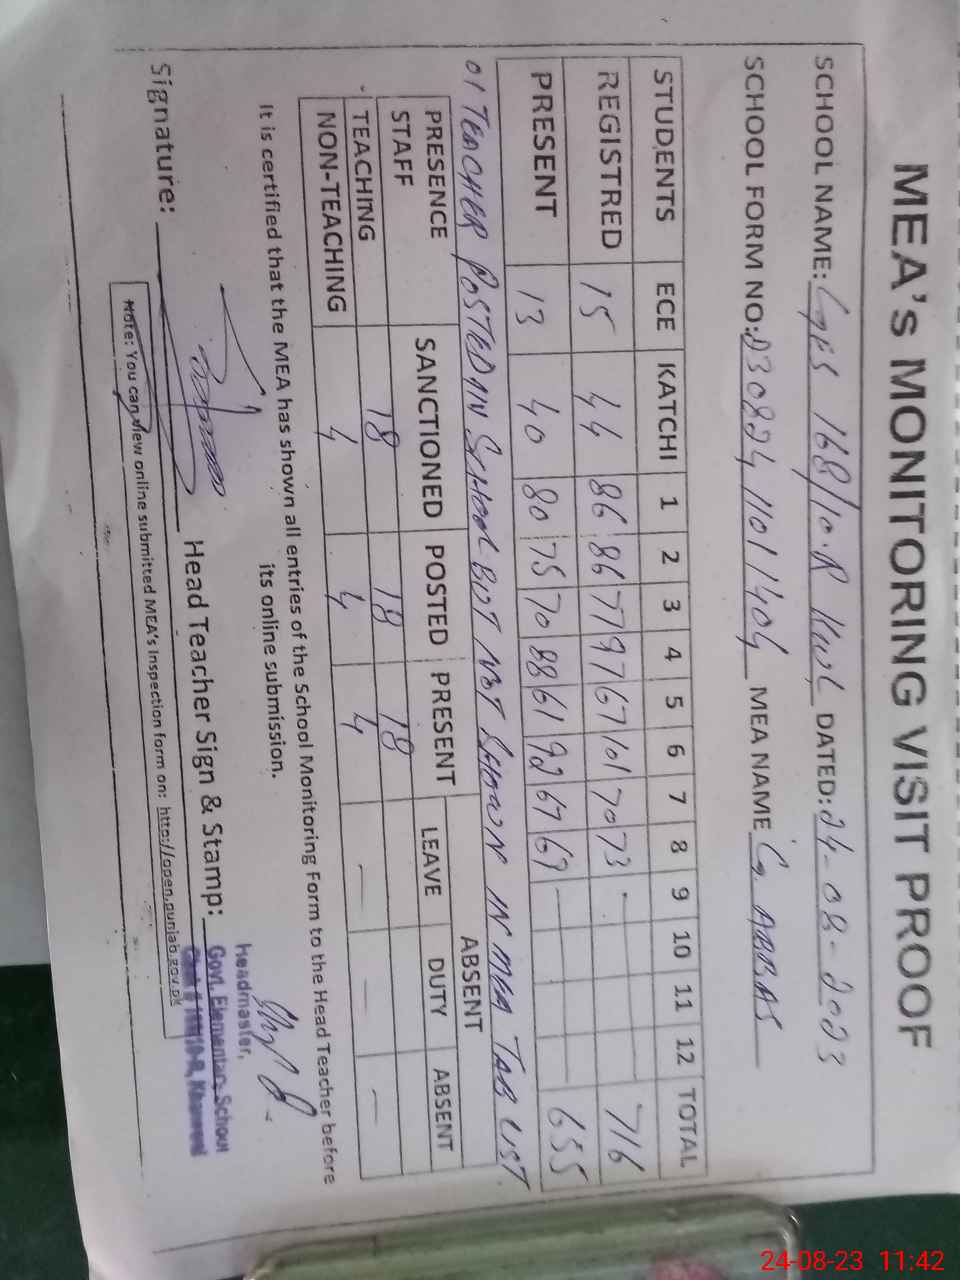 MEA's MONITORING VISIT PROOF
SCHOOL NAME: GES 168/10.R Kwl DATED: 24-08-2023
SCHOOL FORM NO: 230824 1101 1404 MEA NAME G. ABBAS
STUDENTS ECE KATCHI 1 2 3 4 5 6 7 8 9 10 11 12 TOTAL
REGISTRED 15 44 86 86 77 97 67 101 70 73 - 716
PRESENT 13 40 80 75 70 88 61 92 67 69 - 655
01 TEACHER POSTED IN SCHOOL BUT NOT SHOWN IN MEA TAB LIST
PRESENCE STAFF SANCTIONED POSTED PRESENT ABSENT
LEAVE DUTY ABSENT
TEACHING 18 18 18
NON-TEACHING 4 4 4 - - -
It is certified that the MEA has shown all entries of the School Monitoring Form to the Head Teacher before
its online submission.
Signature: Head Teacher Sign & Stamp:
Headmaster,
Govt. Elementary School
Note: You can view online submitted MEA's Inspection form on: http://open.punjab.gov.pk
24-08-23 11:42